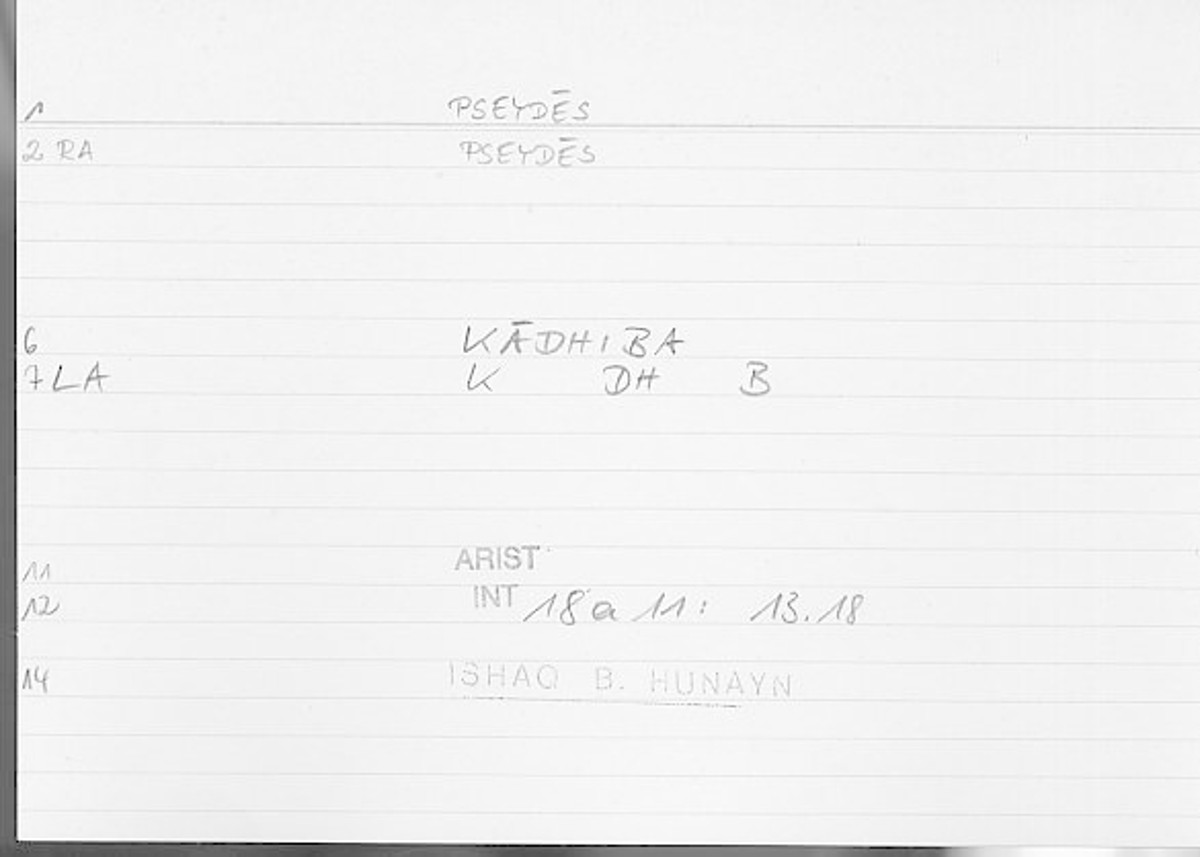 1 PSEYDĒS
2 RA PSEYDĒS
6 KĀDHIBA
7 LA K DH B
11 ARIST
12 INT 18 a 11: 13.18
14 ISHAQ B. HUNAYN